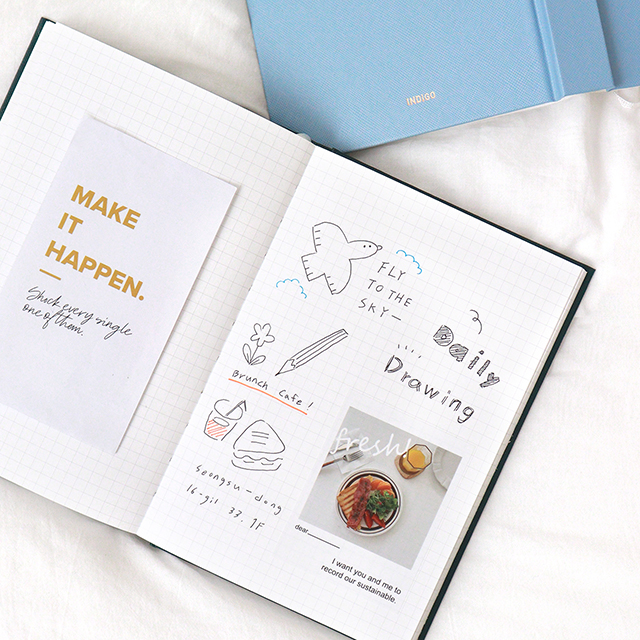 INDIGO
MAKE
IT
HAPPEN.
Shick every single
one of them.
FLY
TO THE
SKY—
Daily
Drawing
Brunch Cafe!
Seongsu-dong
16-gil 33. 1F
fresh!
dear,
I want you and me to
record our sustainable.